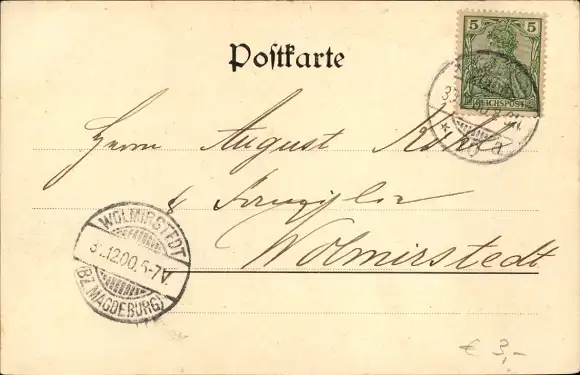 Postkarte
5 5
REICHSPOST
Herrn August
&
Wolmirstedt
WOLMIRSTEDT
31.12.00.5-7V.
(BZ. MAGDEBURG)
€ 3,-